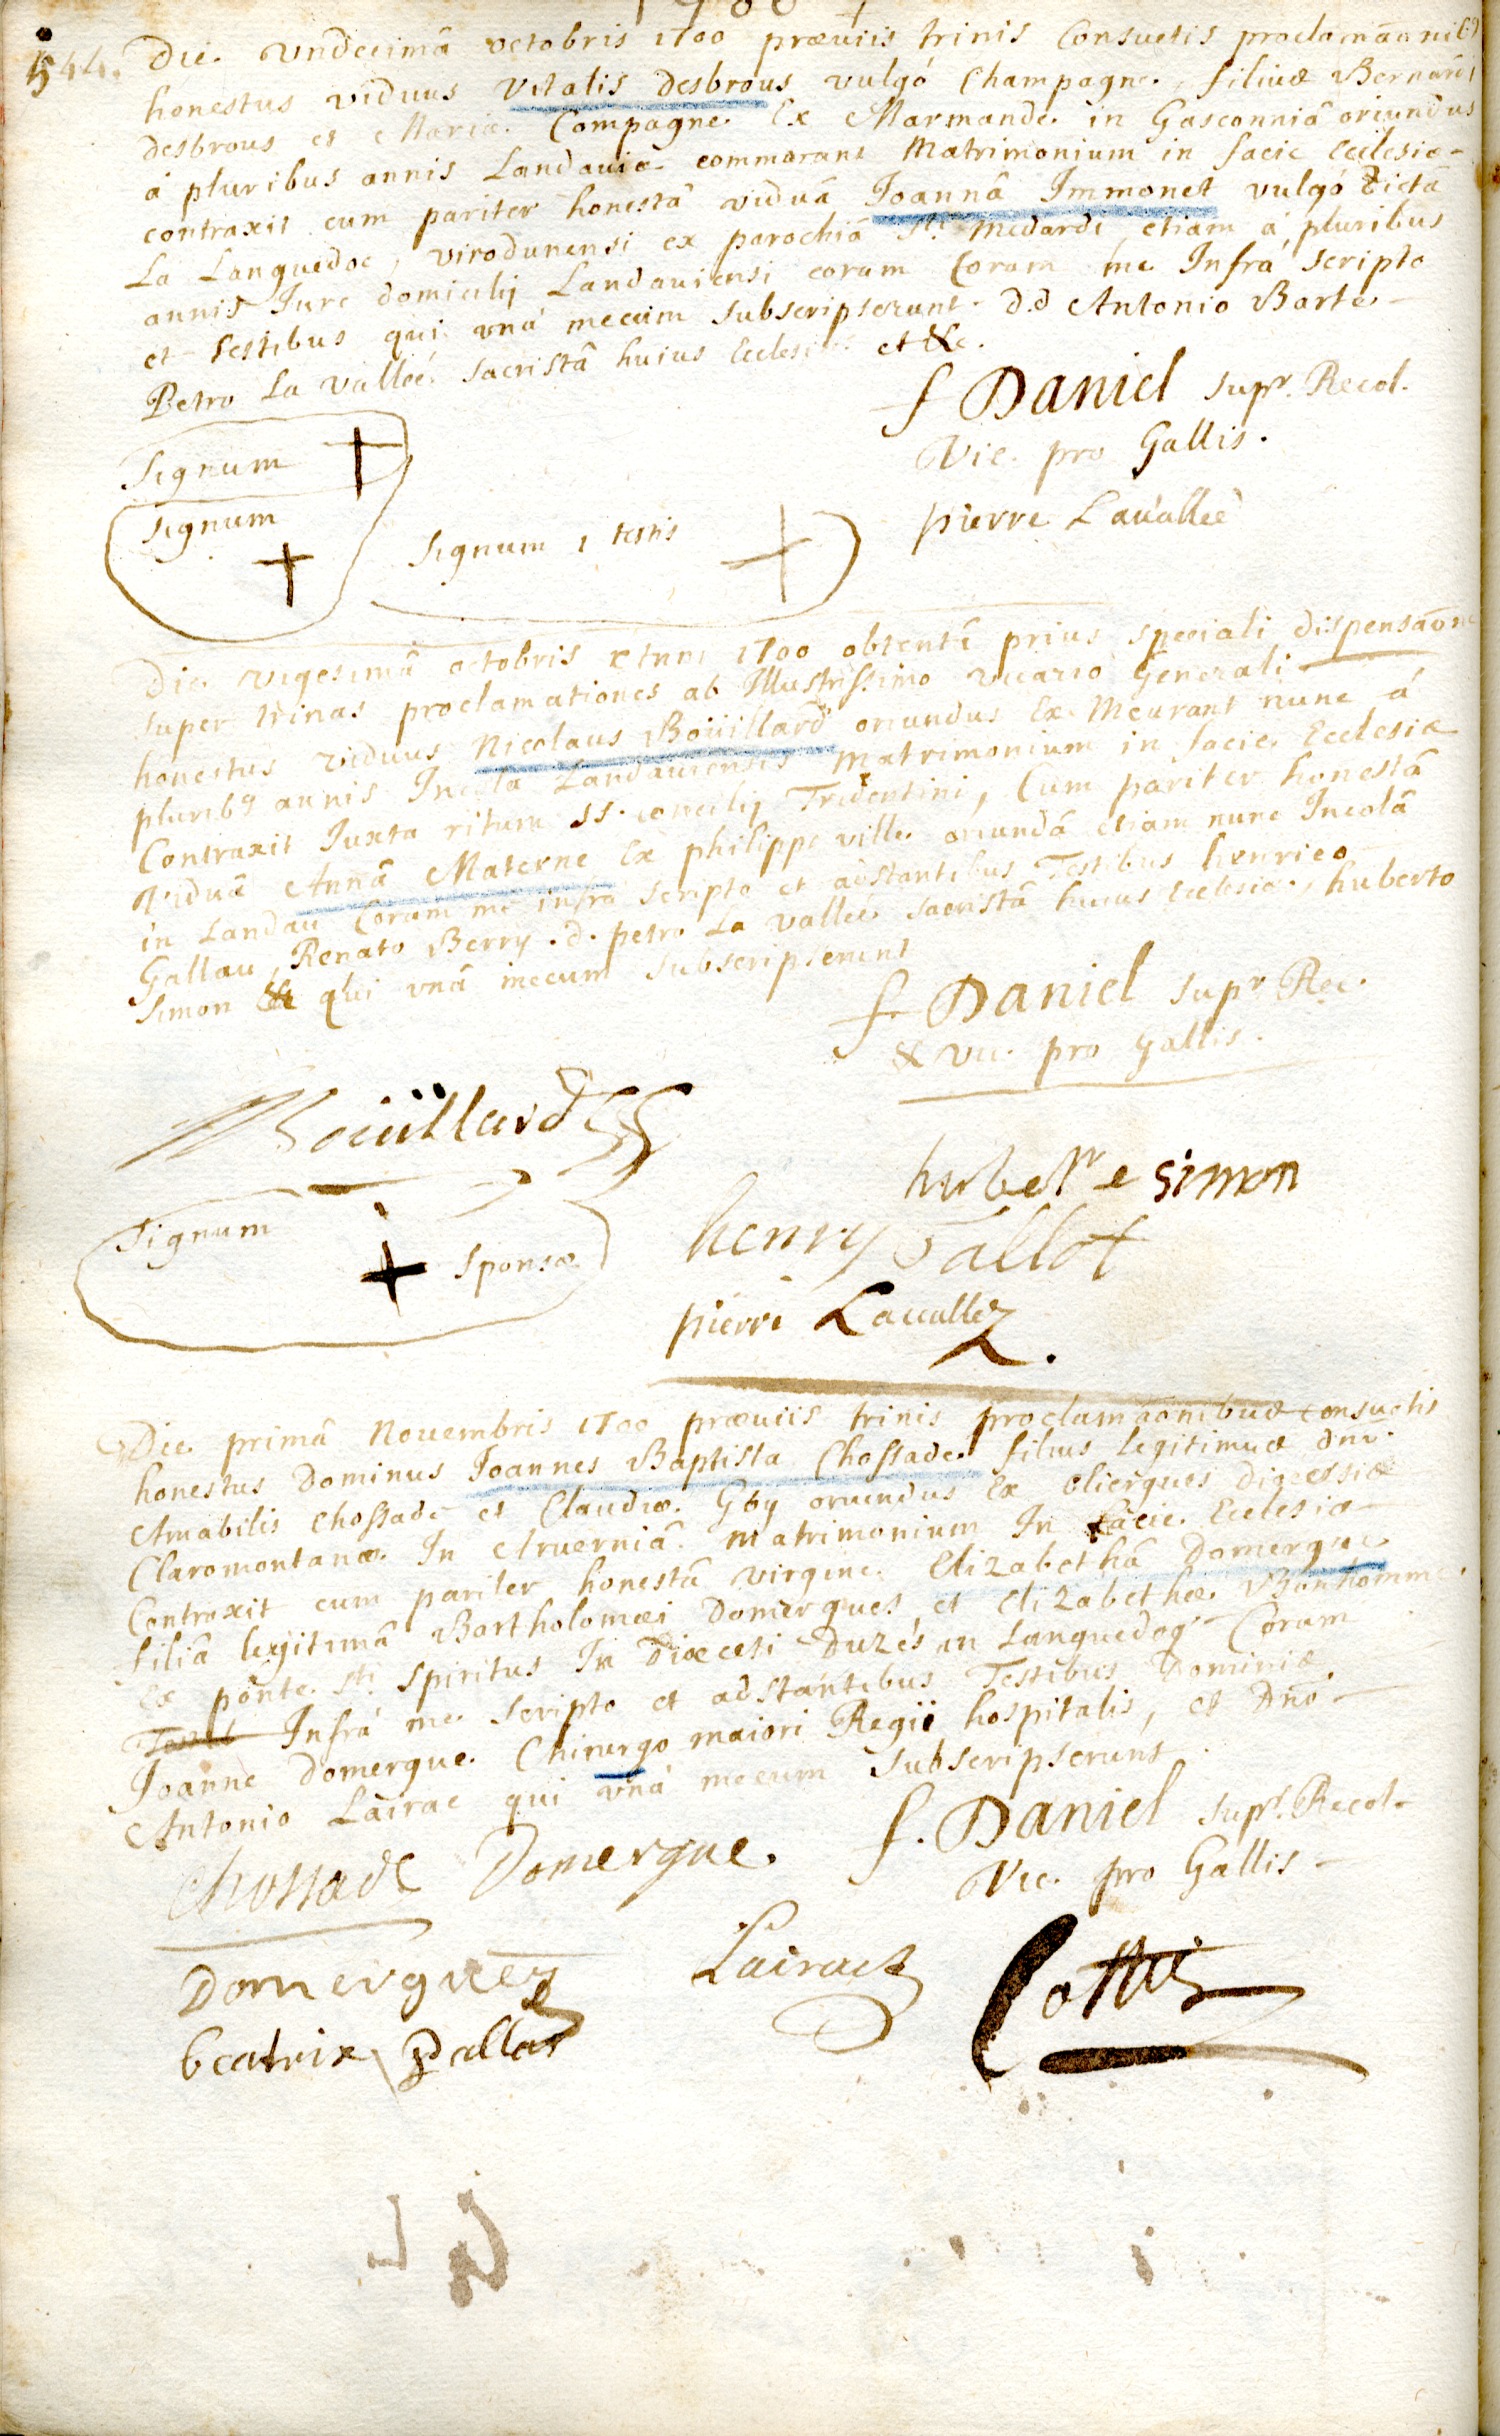 544.
Die Vndecimâ octobris 1700 præuiis trinis Consuetis proclamãonib9
honestus viduus Vitalis Desbrous vulgó Champagne, filius Bernardi
Desbrous et Mariæ Compagne Ex Marmande in Gasconniâ oriundus
á pluribus annis Landauiæ commorans Matrimonium in facie Ecclesiæ
contraxit cum pariter honestâ viduâ Joannâ Immonet vulgó dictâ
La Languedoc, virodunensi ex parochiâ Sti Medardi, etiam á pluribus
annis Jure domicilij Landauiensi coram Coram me Infrá scripto
et testibus qui vná mecum subscripserunt d.d Antonio Barte
Petro La Valleé sacristâ huius Ecclesiæ et &c.
f Daniel supr. Recol.
Vic. pro Gallis.
Signum +
Signum +
Signum 1 testis +
pierre Lauallée
Die vigesimâ octobris 1700 obtentâ prius speciali dispensãone
super trinas proclamationes ab Illustrissimo vicario Generali
honestus viduus Nicolaus Boüillard oriundus Ex Meurant nunc á
plurib9 annis Incola Landauiensis Matrimonium in facie Ecclesiæ
Contraxit Juxta ritum SS. concilij Tridentini, Cum pariter honestâ
Viduâ Annâ Materne Ex philippe ville oriundâ etiam nunc Incolâ
in Landau Coram me infrá scripto et adstantibus Testibus henrico
Gallau, Renato Berry. d. petro La Vallée sacristâ huius Ecclesiæ, huberto
Simon &c qui vná mecum subscripserunt
f. Daniel supr Rec.
& vic. pro gallis.
Boüillard
Signum + sponsæ
hubert e simon
henry Gallot
pierre Lauallez
Die primâ Nouembris 1700 præuiis trinis proclamãonibus consuetis
honestus Dominus Joannes Baptista Chossade filius legitimus dni
Amabilis Chossade et Claudiæ Gby oriundus Ex Oliergues Diœcesis
Claromontanæ In Aruerniâ Matrimonium In facie Ecclesiæ
Contraxit cum pariter honestâ virgine Elizabethâ Domergue
filiâ legitimâ Bartholomæi Domergues, et Elizabethæ Bonhomme
Ex ponte Sti Spiritus In Diœcesi Duzés in Languedoq Coram
Infrá me scripto et adstantibus Testibus Dominis
Joanne Domergue Chirurgo maiori Regii hospitalis, et Dno
Antonio Lairac qui vná mecum subscripserunt
f. Daniel supr. Recol
Vic. pro Gallis
Chossade Domergue.
Domergue
Lairac
Beatrix Dallas